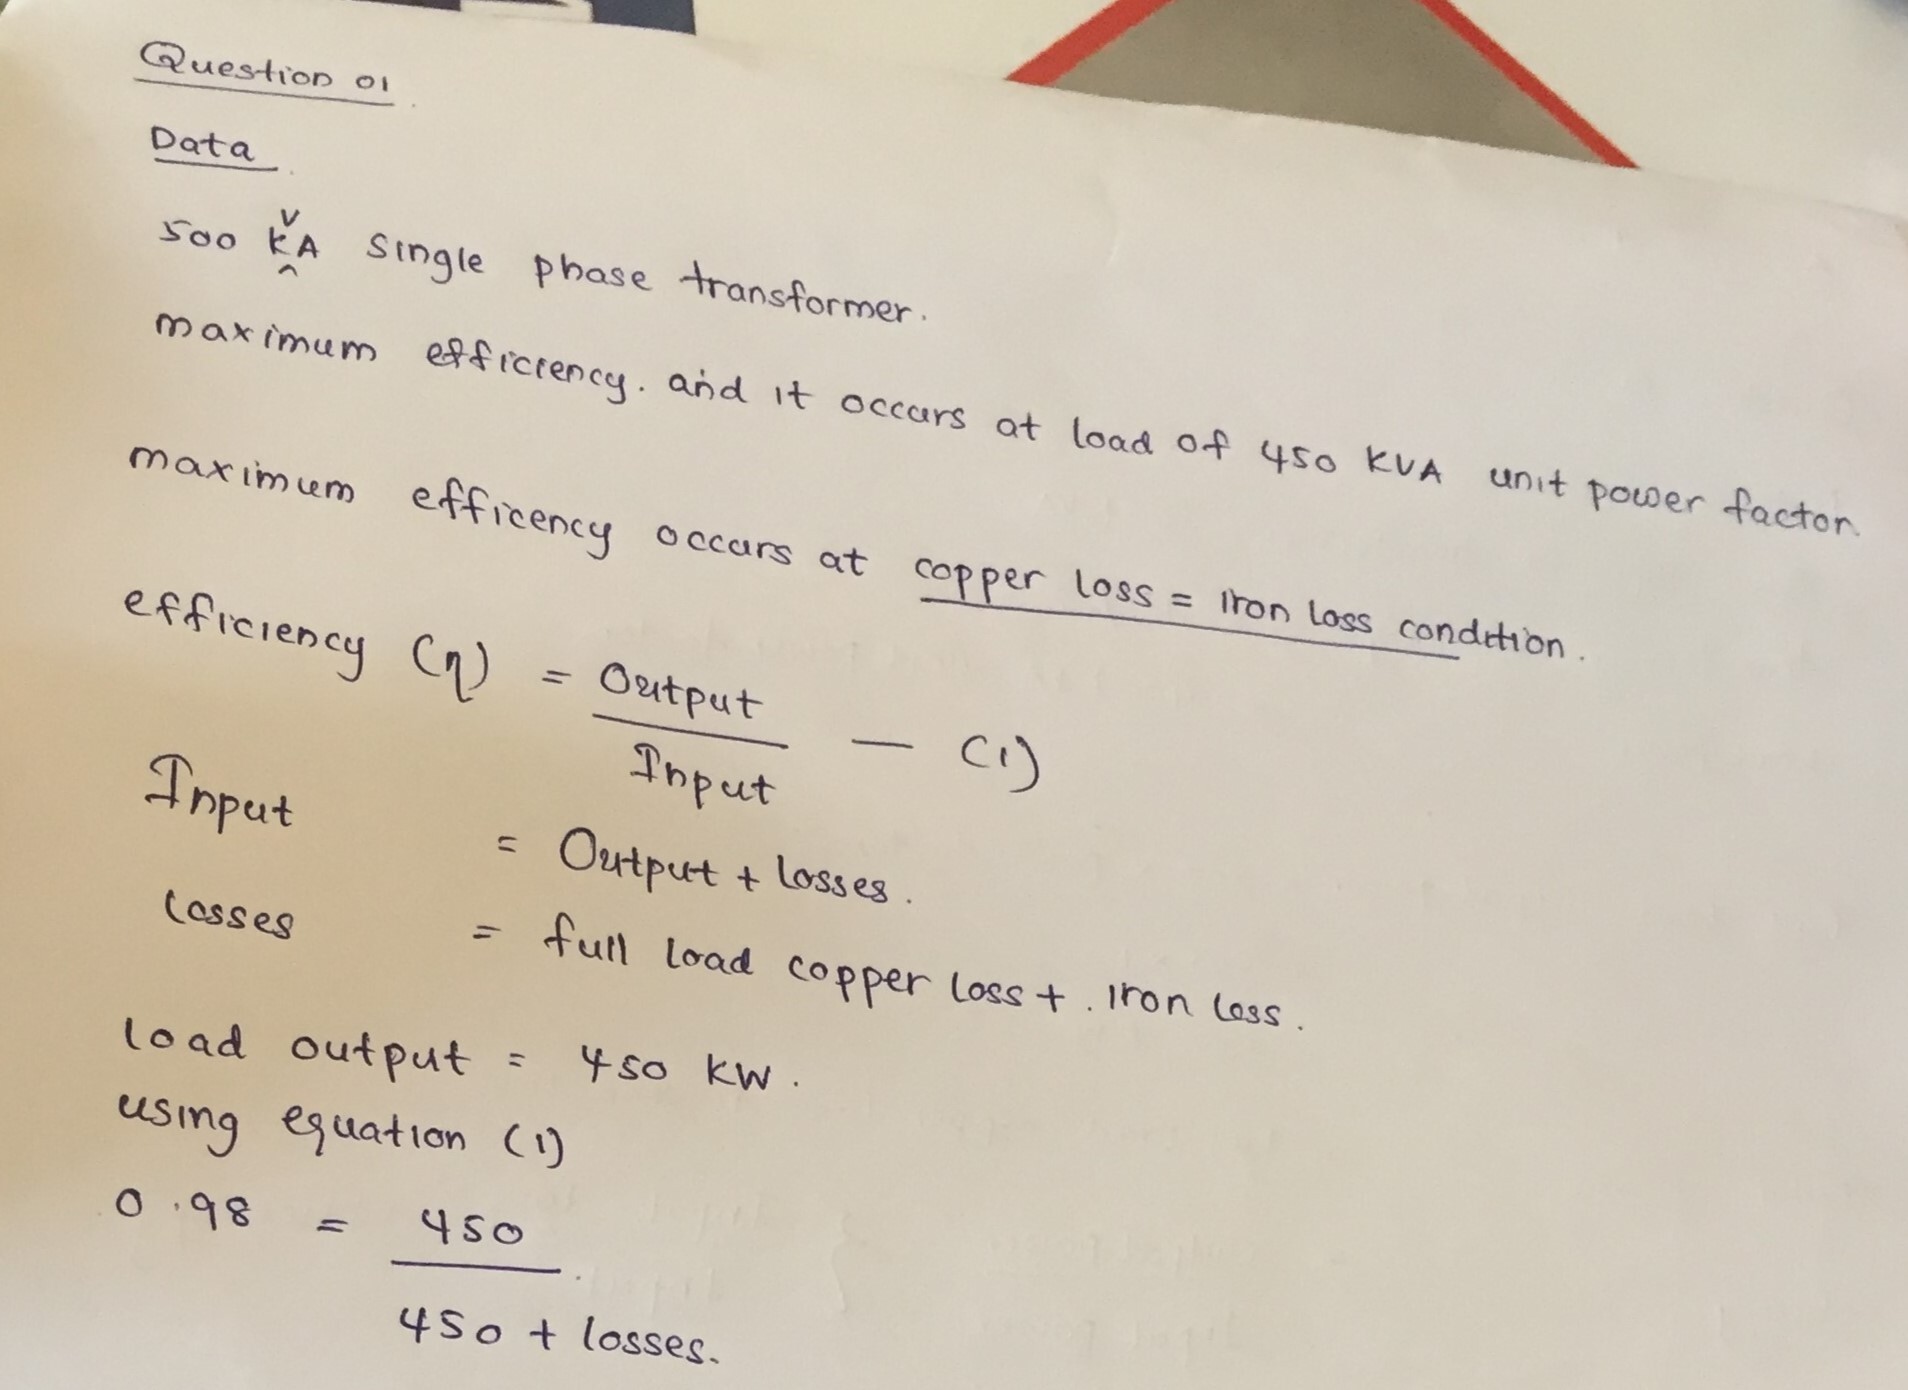 Question 01
Data
500 KVA single phase transformer.
maximum efficiency. and it occurs at load of 450 KVA unit power factor.
maximum efficency occurs at copper loss = Iron loss condition.
efficiency (η) = Output / Input — (1)
Input = Output + losses.
losses = full load copper loss + . Iron loss.
load output = 450 KW.
using equation (1)
0.98 = 450 / 450 + losses.